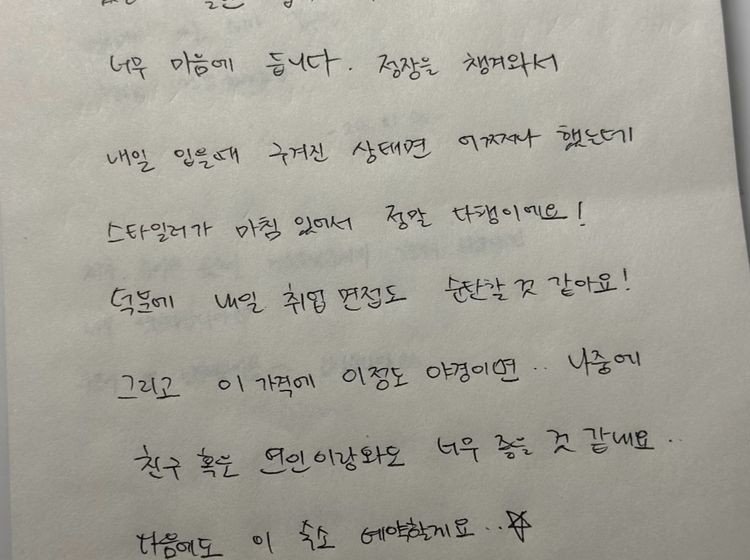 너무 마음에 듭니다. 정장을 챙겨와서
내일 입을때 구겨진 상태면 어쩌저나 했는데
스타일러가 마침 있어서 정말 다행이에요!
덕분에 내일 취업 면접도 순탄할 것 같아요!
그리고 이 가격에 이정도 야경이면.. 나중에
친구 혹은 연인이랑와도 너무 좋을 것 같네요..
다음에도 이 숙소 예약할게요..☆